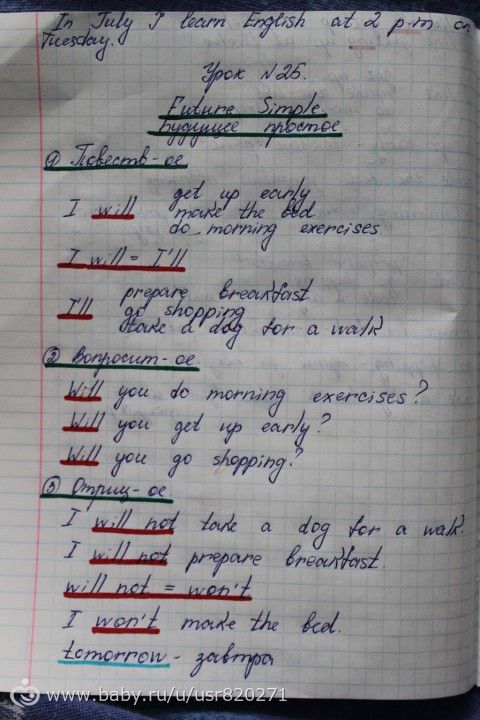 In July I learn English at 2 p.m. on
Tuesday.
Урок №25.
Future Simple
Будущее простое.
① Повеств-ое
get up early
I will make the bed
do morning exercises.
I will = I'll
prepare breakfast
I'll go shopping
take a dog for a walk
② Вопросит-ое
Will you do morning exercises?
Will you get up early?
Will you go shopping?
③ Отриц-ое
I will not take a dog for a walk.
I will not prepare breakfast.
will not = won't
I won't make the bed.
tomorrow - завтра
www.baby.ru/u/usr820271